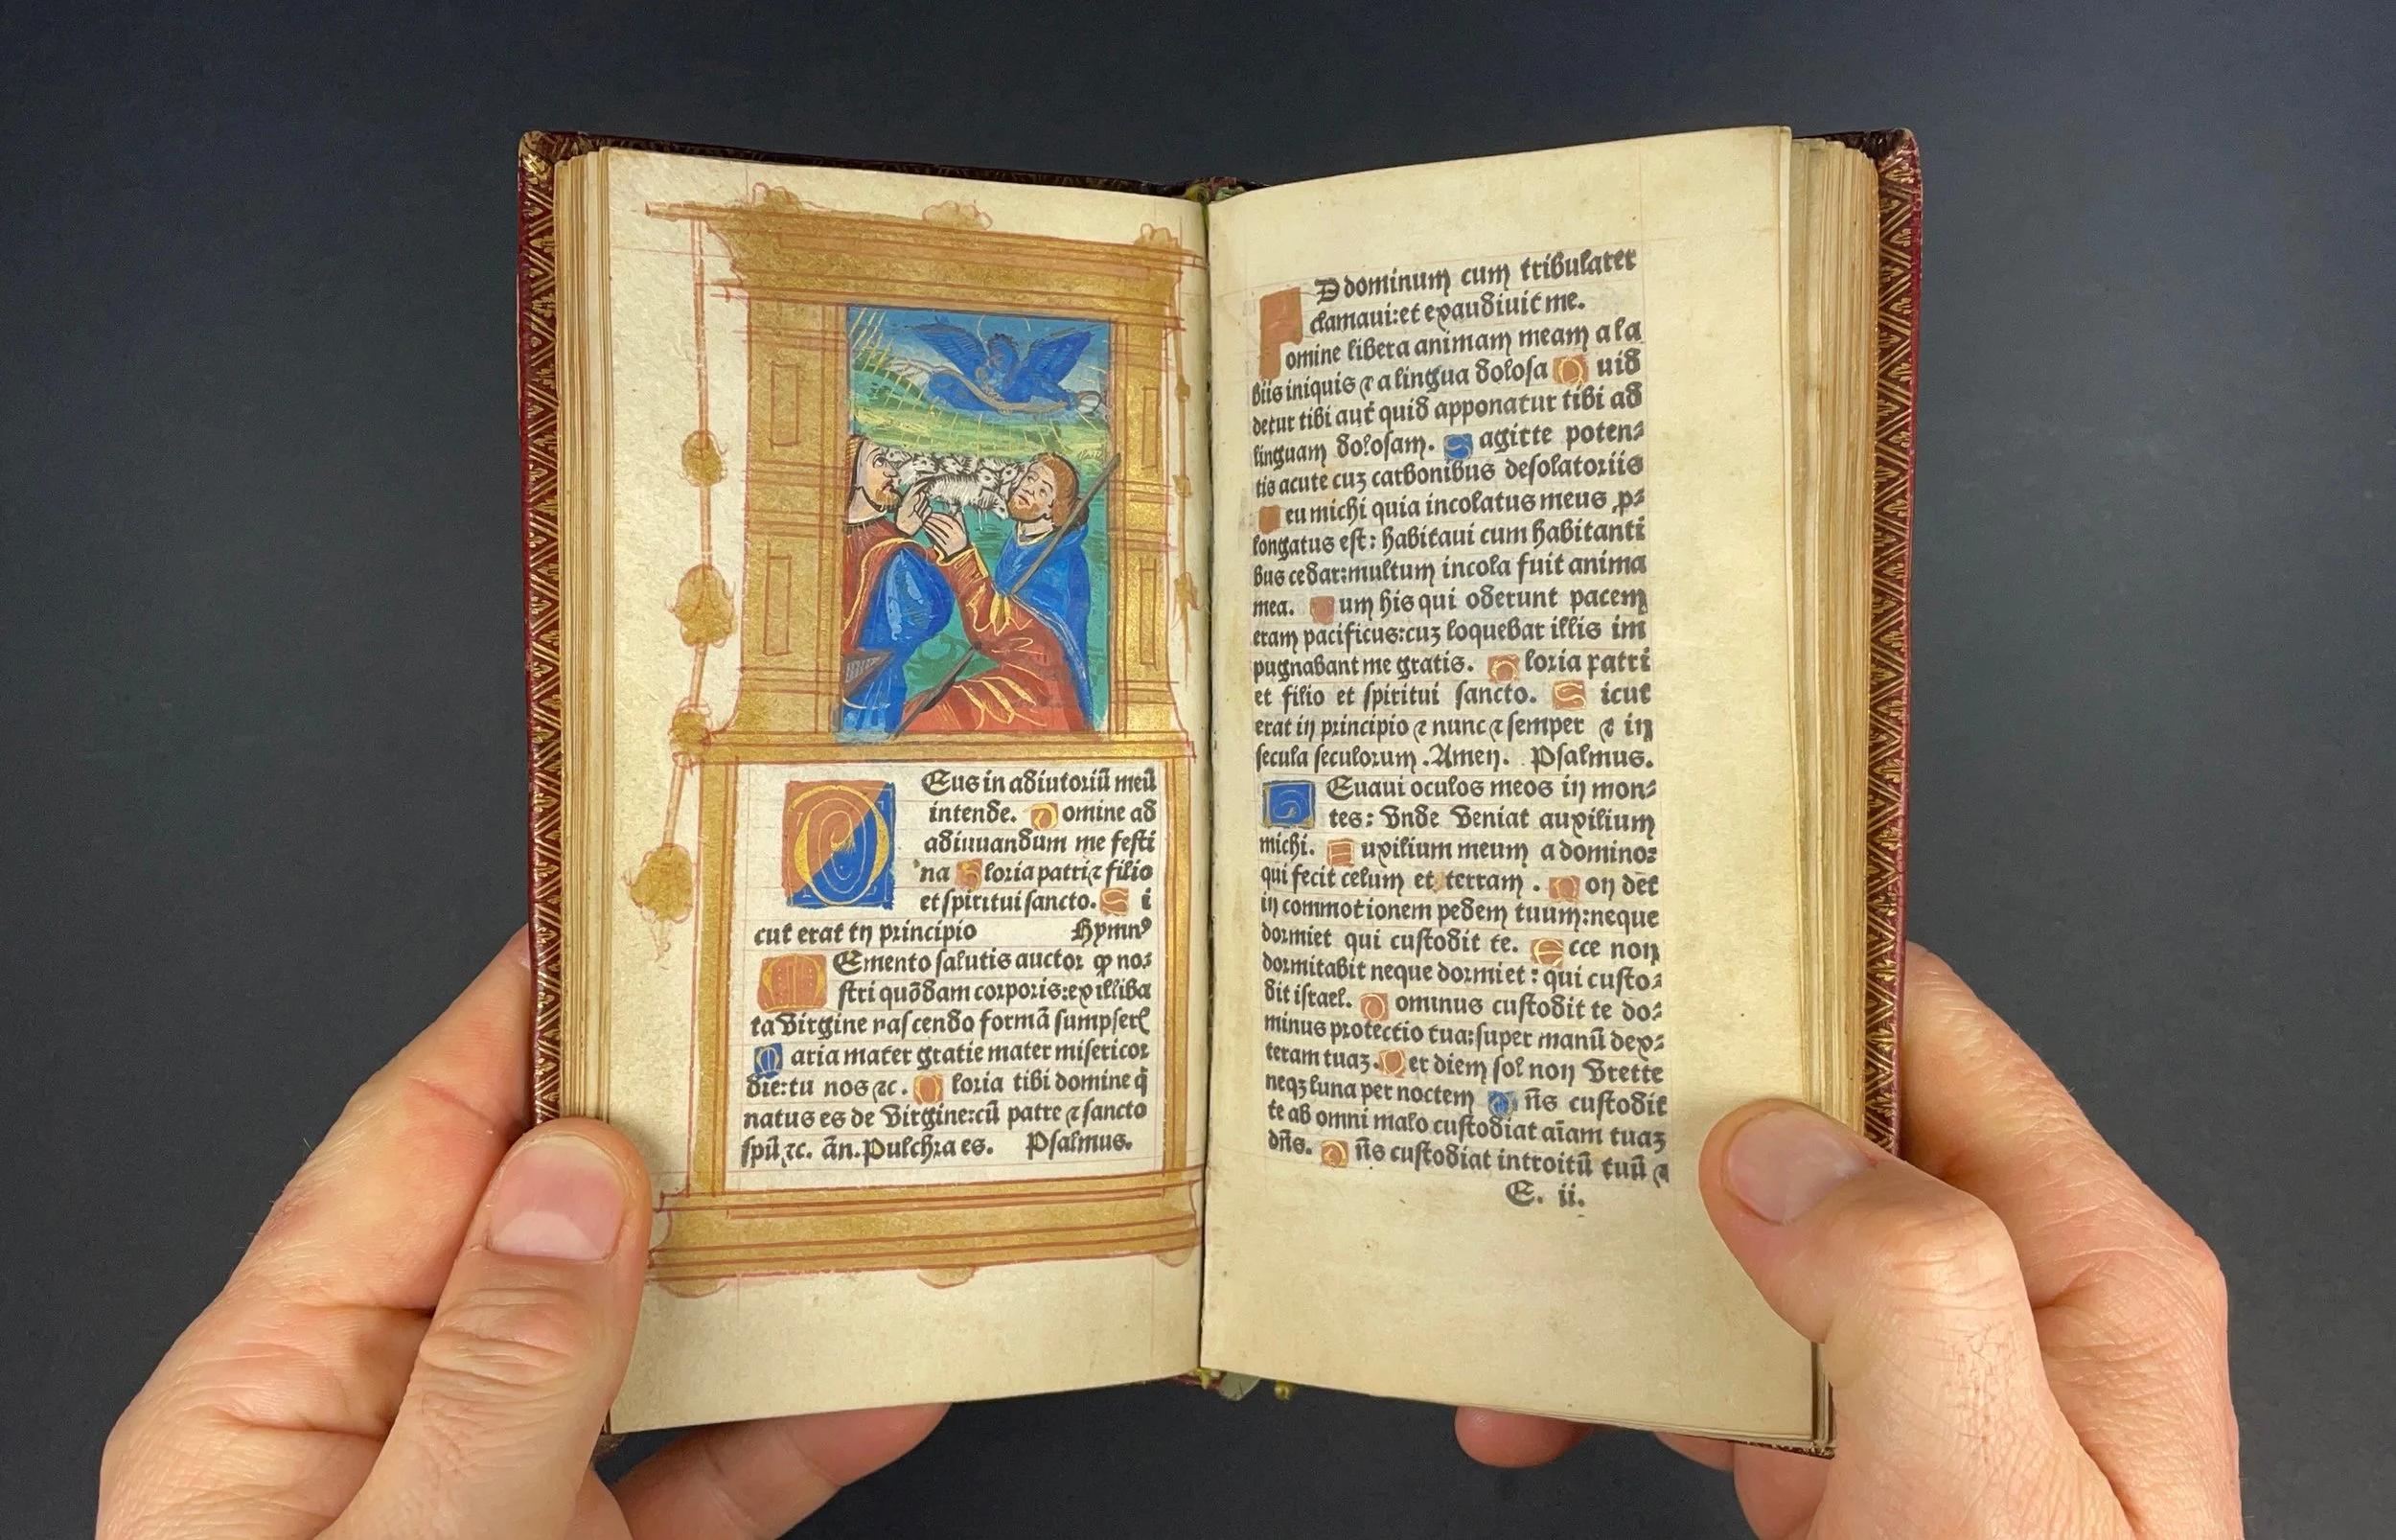 DEus in adiutoriū meū
intende. Domine ad
adiuuandum me festi
na Gloria patri ⁊ filio
et spiritui sancto. Si
cut erat in principio Hymnꝰ
MEmento salutis auctor ꝙ nos⸗
stri quōdam corporis:ex illiba
ta virgine nascendo formā sumpseris
Maria mater gratie mater misericor
die:tu nos ⁊c. Gloria tibi domine q̄
natus es de virgine:cū patre ⁊ sancto
spū ⁊c. ān. Pulchra es. Psalmus.
AD dominum cum tribularer
clamaui:et exaudiuit me.
Domine libera animam meam a la
biis iniquis ⁊ a lingua dolosa Quid
detur tibi aut quid apponatur tibi ad
linguam dolosam. Sagitte poten⸗
tis acute cuȝ carbonibus desolatoriis
Heu michi quia incolatus meus ꝓ⸗
longatus est: habitaui cum habitanti
bus cedar:multum incola fuit anima
mea. Cum his qui oderunt pacem
eram pacificus:cuȝ loquebar illis im
pugnabant me gratis. Gloria patri
et filio et spiritui sancto. Sicut
erat in principio ⁊ nunc ⁊ semper ⁊ in
secula seculorum. Amen. Psalmus.
LEuaui oculos meos in mon⸗
tes: vnde veniat auxilium
michi. Auxilium meum a domino:
qui fecit celum et terram. Non det
in commotionem pedem tuum:neque
dormiet qui custodit te. Ecce non
dormitabit neque dormiet: qui custo⸗
dit israel. Dominus custodit te do⸗
minus protectio tua:super manū dex⸗
teram tuaȝ. Per diem sol non vrette
neqȝ luna per noctem Dn̄s custodit
te ab omni malo custodiat aīam tuaȝ
dn̄s. Dn̄s custodiat introitū tuū ⁊
E. ii.